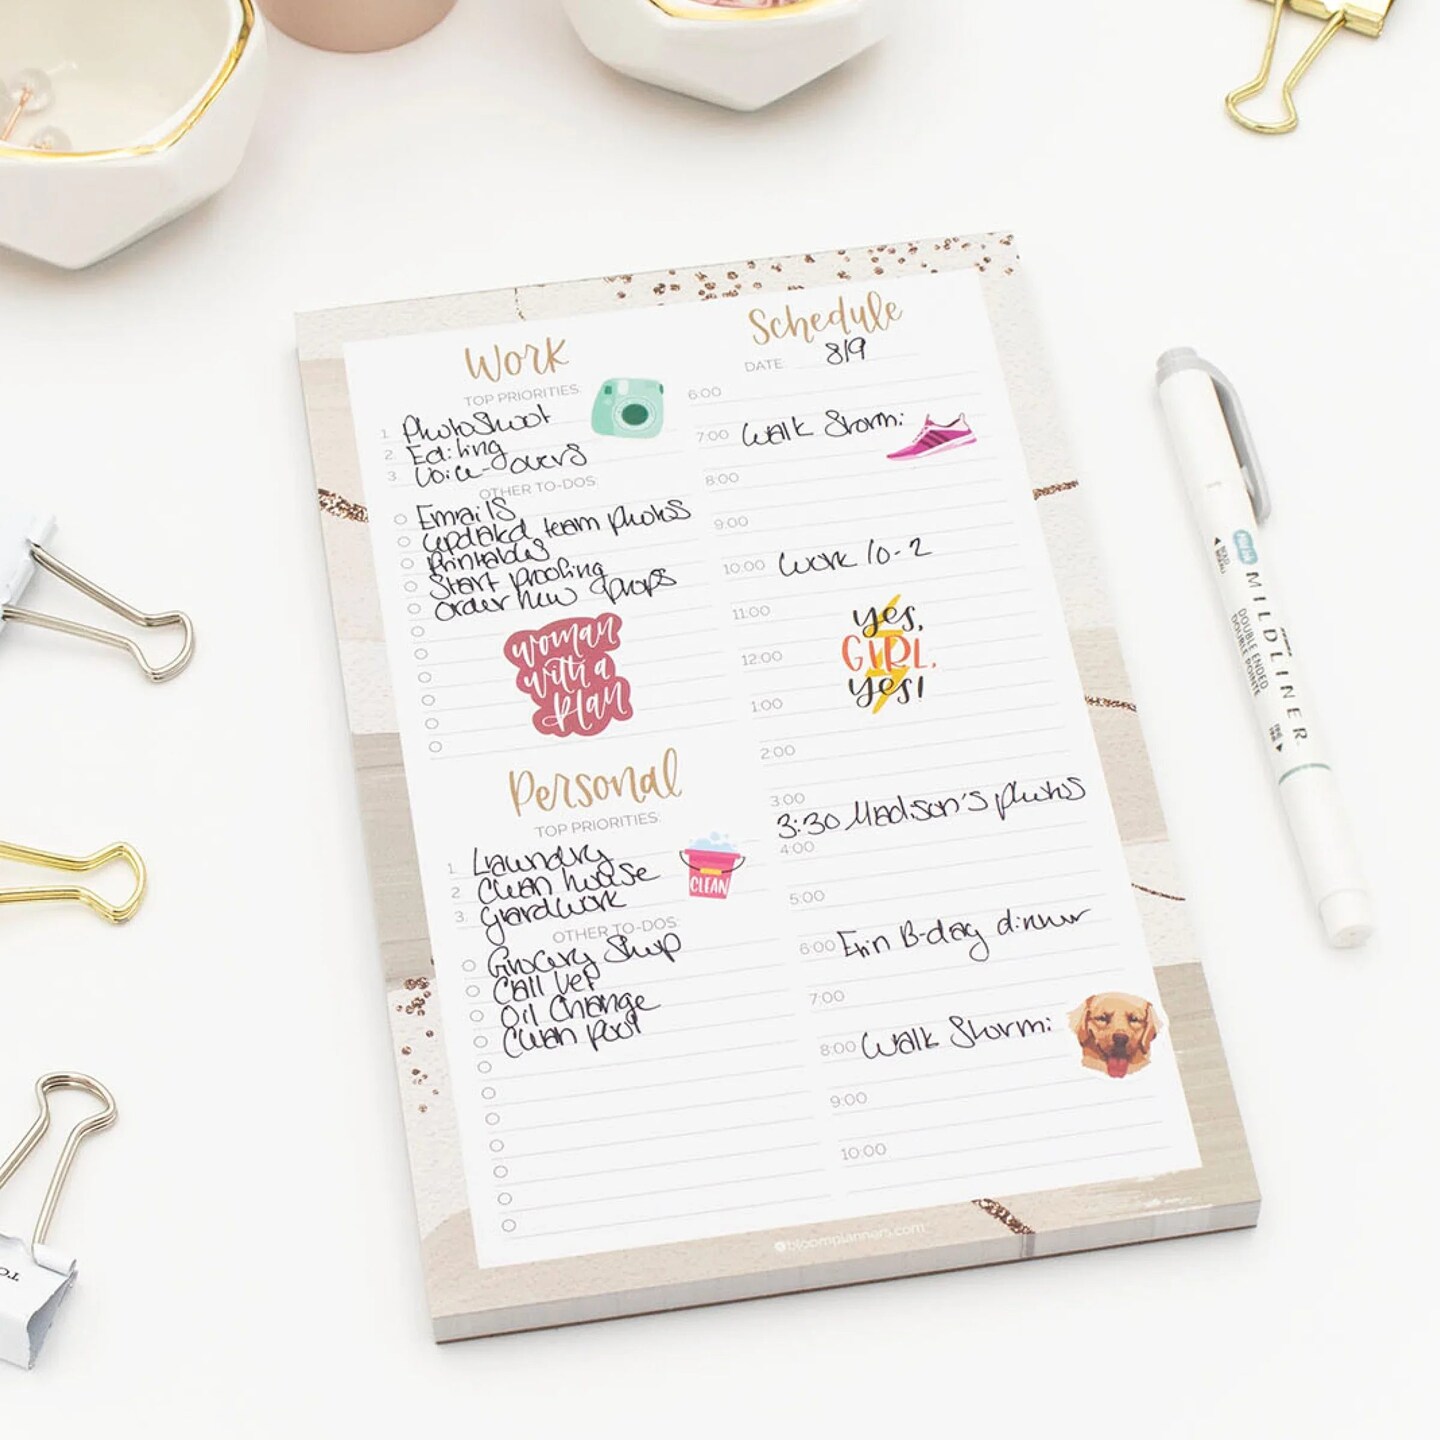 Work
TOP PRIORITIES:
1. Photoshoot
2. Editing
3. Voice-overs
OTHER TO-DOS:
Emails
Updated team photos
Printables
Start proofing
Order new props
woman
with a
plan
Personal
TOP PRIORITIES:
1. Laundry
2. Clean house
3. Yardwork
CLEAN
OTHER TO-DOS:
Grocery Shop
Call Vet
Oil Change
Clean pool
Schedule
DATE: 8/9
6:00
7:00 Walk Stormi
8:00
9:00
10:00 Work 10-2
11:00
12:00
1:00
yes,
GIRL,
yes!
2:00
3:00
3:30 Madison's photos
4:00
5:00
6:00 Erin B-day dinner
7:00
8:00 Walk Stormi
9:00
10:00
bloomplanners.com
MILDLINER
DOUBLE ENDED
DOUBLE POINTE